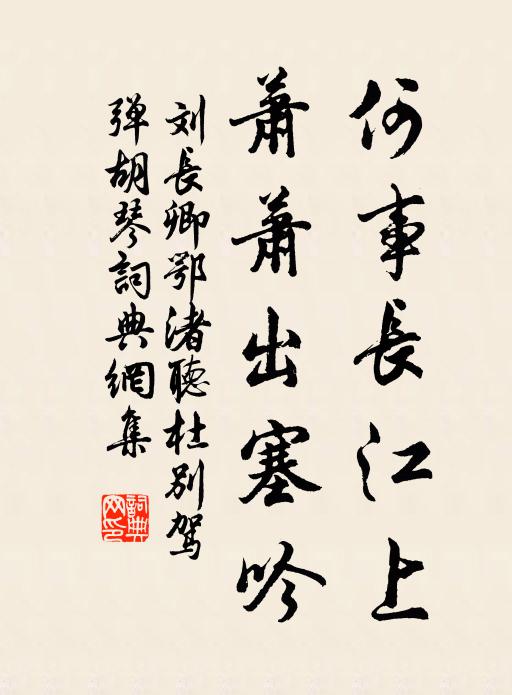 何事長江上
蕭蕭出塞吟
刘長卿鄂渚聽杜別駕
弹胡琴詞典網集
詞典
网印